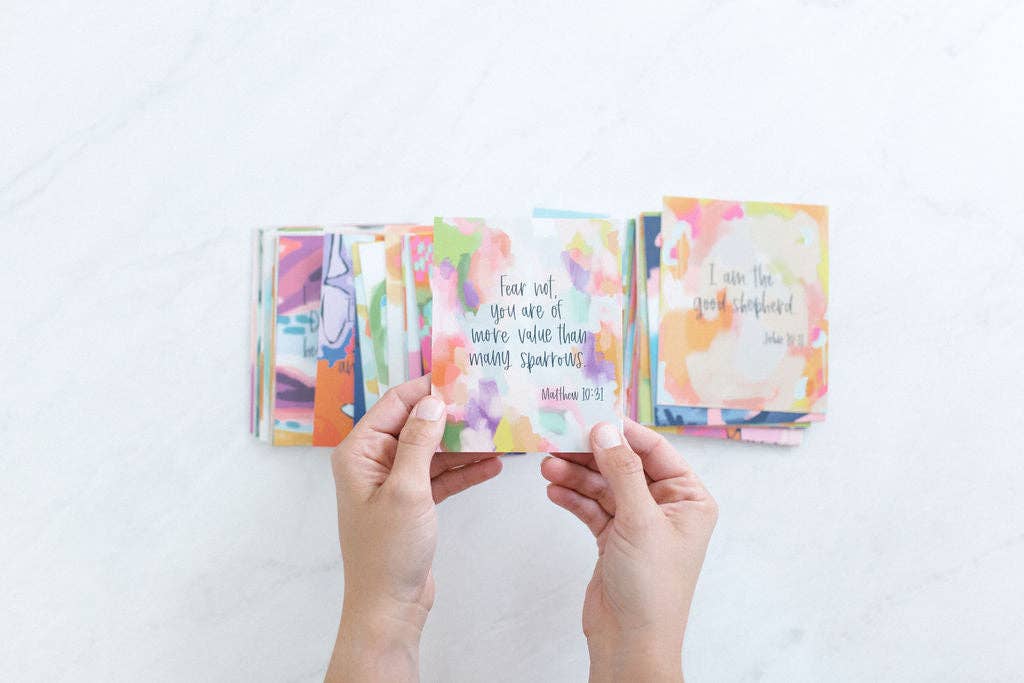 Fear not,
you are of
more value than
many sparrows.
Matthew 10:31
I am the
good shepherd.